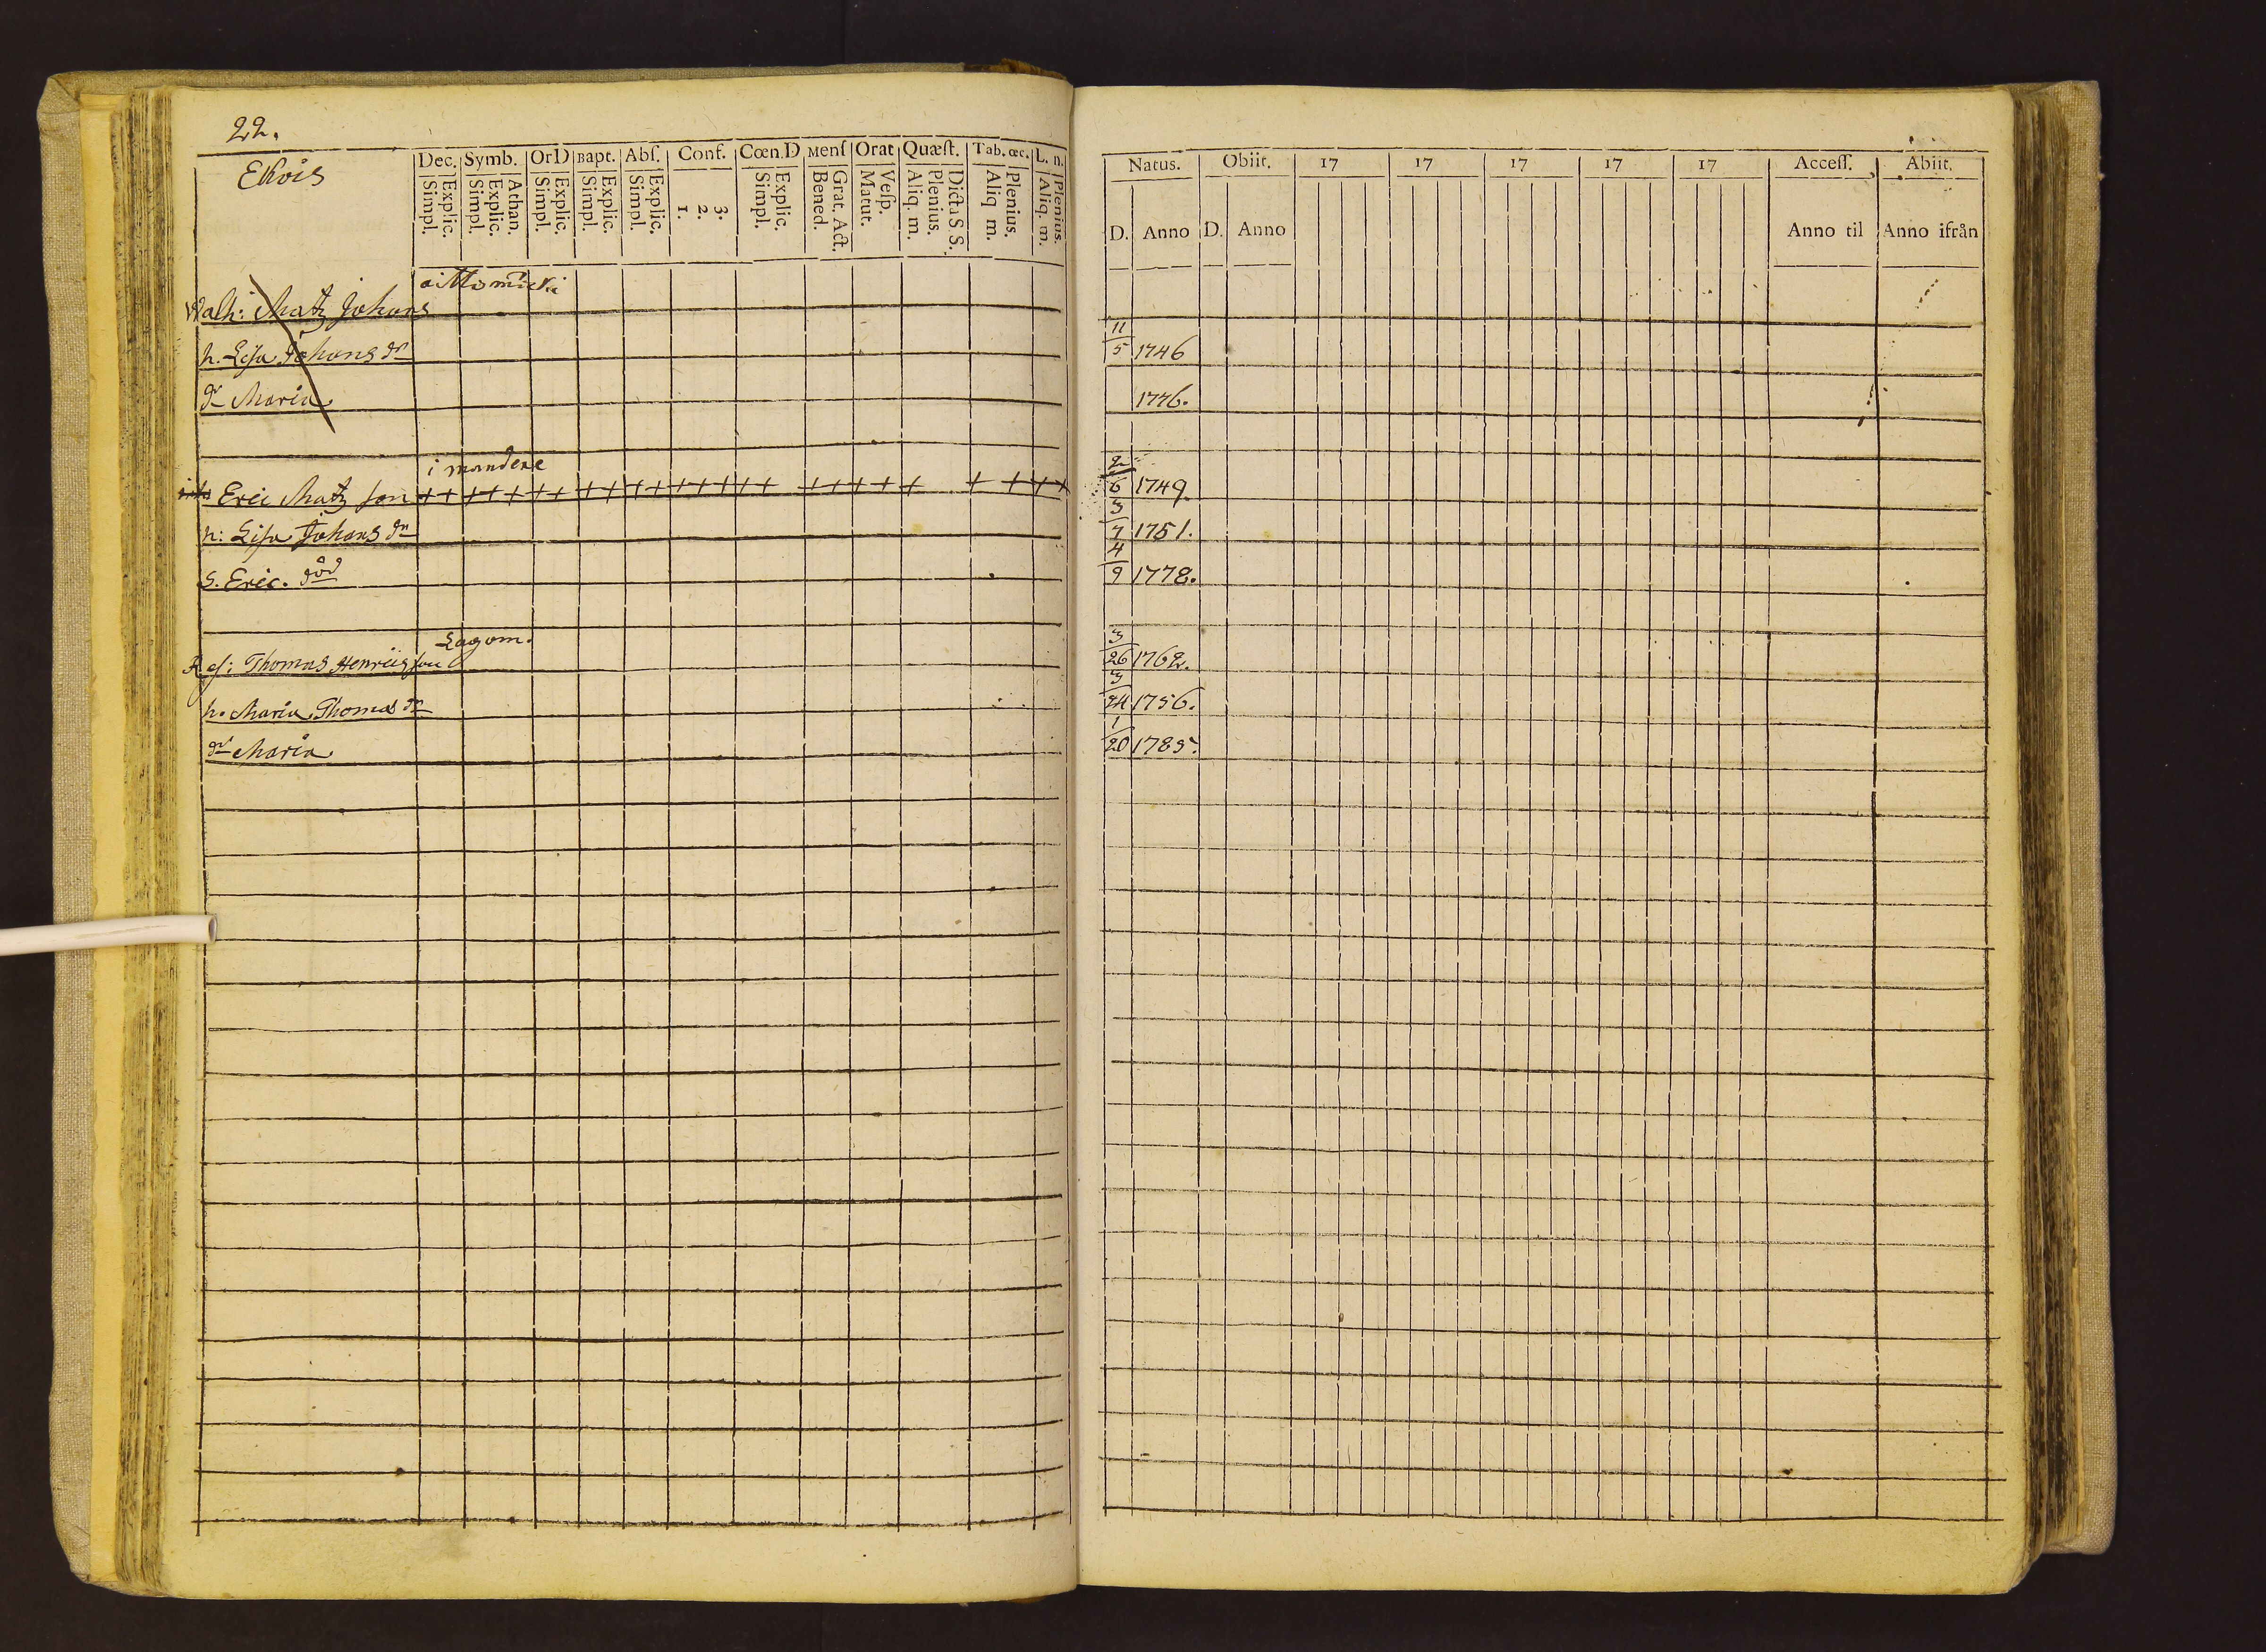 22.
Ekois
Dec. Symb. OrD Bapt. Abſ. Conf. Cœn.D Menſ Orat Quæſt. Tab.œc. L. n.
Simpl. Explic. Simpl. Explic. Athan. Simpl. Explic. Simpl. Explic. Simpl. Explic. 1. 2. 3. Simpl. Explic. Bened. Grat. Act. Matut. Veſp. Aliq. m. Plenius. Dicta S S. Aliq m. Plenius. Aliq. m. Plenius.
Walh: Matz Johans
h. Lisa Johans dr
dr Maria
i mandere
Eric Matz son + + + + + + + + + + + + + + + + + + + + + + + + + +
h: Lisa Johans dr
S. Eric. död
Lagom.
Thomas Henricsson
h. Maria Thomas dr
dr Maria
Natus. Obiit. 17 17 17 17 17 Acceſſ. Abiit.
D. Anno D. Anno Anno til Anno ifrån
11/5 1746
1776.
2/6 1749.
3/7 1751.
4/9 1778.
3/26 1762.
3/24 1756.
1/20 1785.